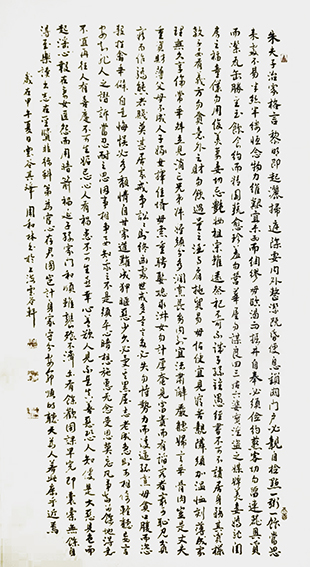 朱夫子治家格言 黎明即起灑掃庭除要內外整潔既昏便息關鎖門戶必親自檢點一粥一飯當思
來處不易半絲半縷恒念物力維艱宜未雨而綢繆毋臨渴而掘井自奉必須儉約宴客切勿留連器具質
而潔瓦缶勝金玉飲食約而精園蔬愈珍饈勿營華屋勿謀良田三姑六婆實淫盜之媒婢美妾嬌非閨
房之福奴僕勿用俊美妻妾切忌艷妝祖宗雖遠祭祀不可不誠子孫雖愚經書不可不讀居身務期質樸
教子要有義方勿貪意外之財勿飲過量之酒與肩挑貿易毋佔便宜見窮苦親鄰須加溫恤刻薄成家
理無久享倫常乖舛立見消亡兄弟叔侄須分多潤寡長幼內外宜法肅辭嚴聽婦言乖骨肉豈是丈夫
重資財薄父母不成人子嫁女擇佳婿毋索重聘娶媳求淑女勿計厚奩見富貴而生諂容者最可恥見貧
窮而作驕態者賤莫甚居家戒爭訟訟則終凶處世戒多言言多必失勿恃勢力而凌逼孤寡毋貪口腹而恣
殺牲禽乖僻自是悔誤必多頹惰自甘家道難成狎暱惡少久必受其累屈志老成急則可相依輕聽發言
安知非人之譖訴當忍耐三思因事相爭焉知非我之不是須平心暗想施惠無念受恩莫忘凡事當留餘地得意
不宜再往人有喜慶不可生妒忌心人有禍患不可生喜幸心善欲人見不是真善惡恐人知便是大惡見色而
起淫心報在妻女匿怨而用暗箭禍延子孫家門和順雖饔飧不濟亦有餘歡國課早完即囊橐無餘自
得至樂讀書志在聖賢非徒科第為官心存君國豈計身家守分安命順時聽天為人若此庶乎近焉
歲在甲午夏日雲谷 周和林書於上海雲谷軒